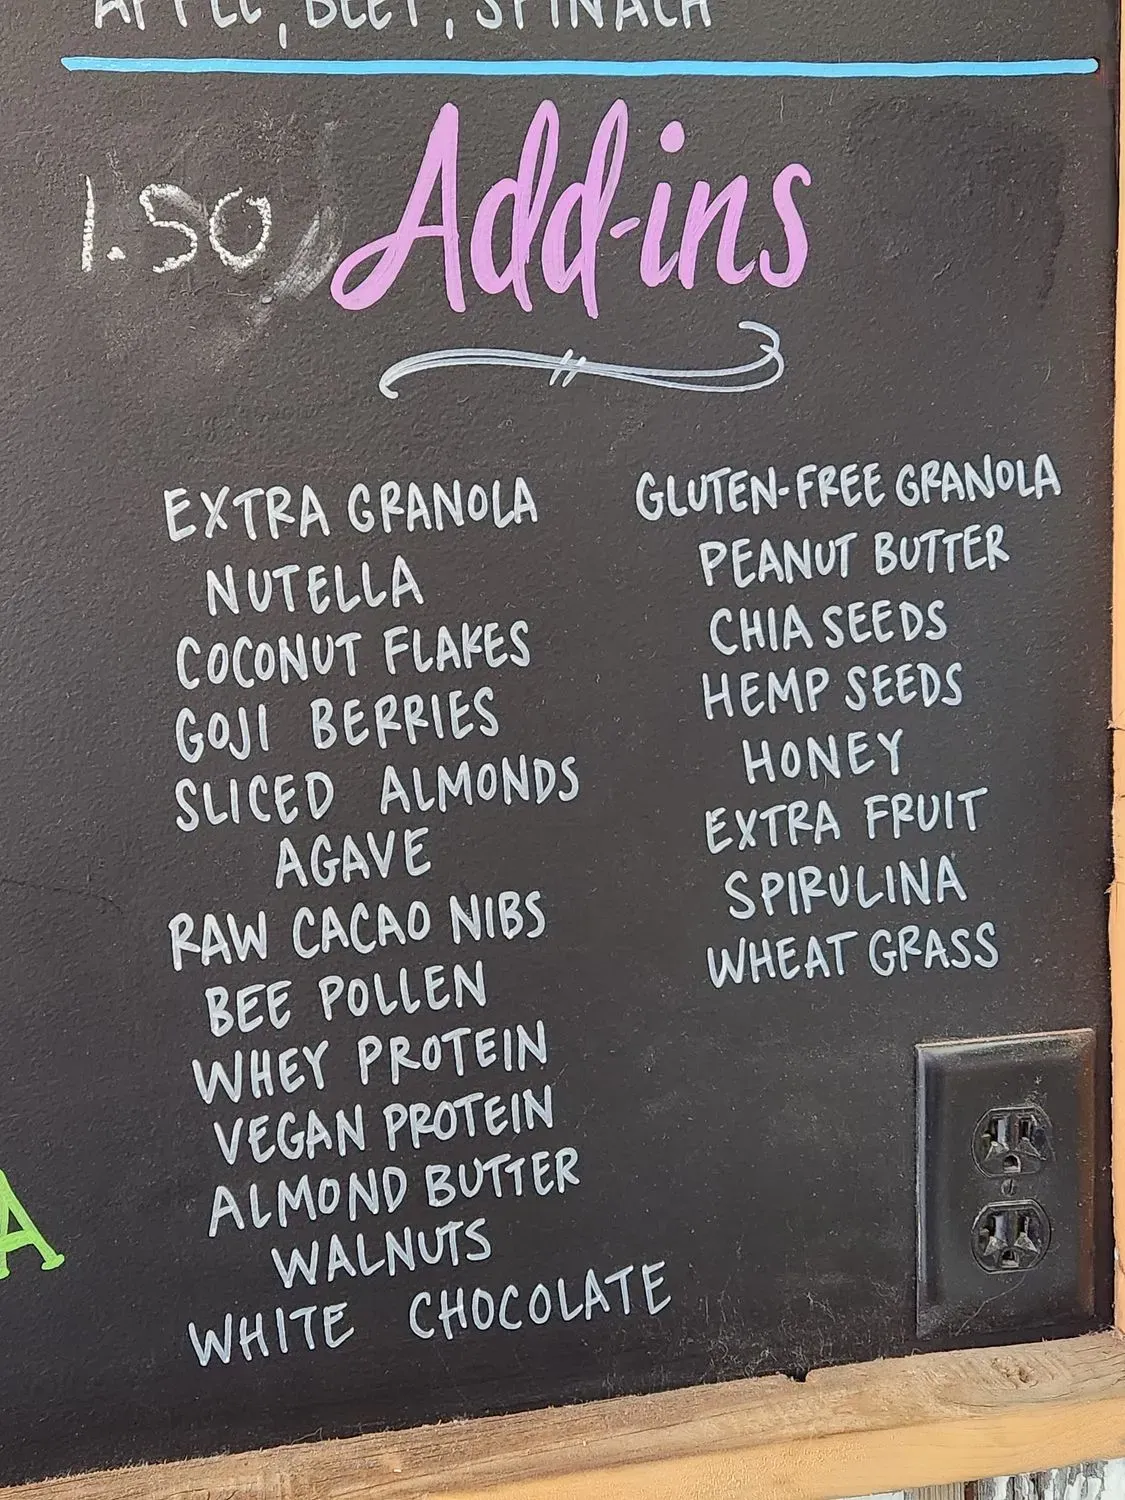 APPLE, BEET, SPINACH
1.50 Add-ins
EXTRA GRANOLA
NUTELLA
COCONUT FLAKES
GOJI BERRIES
SLICED ALMONDS
AGAVE
RAW CACAO NIBS
BEE POLLEN
WHEY PROTEIN
VEGAN PROTEIN
ALMOND BUTTER
WALNUTS
WHITE CHOCOLATE
GLUTEN-FREE GRANOLA
PEANUT BUTTER
CHIA SEEDS
HEMP SEEDS
HONEY
EXTRA FRUIT
SPIRULINA
WHEAT GRASS
A